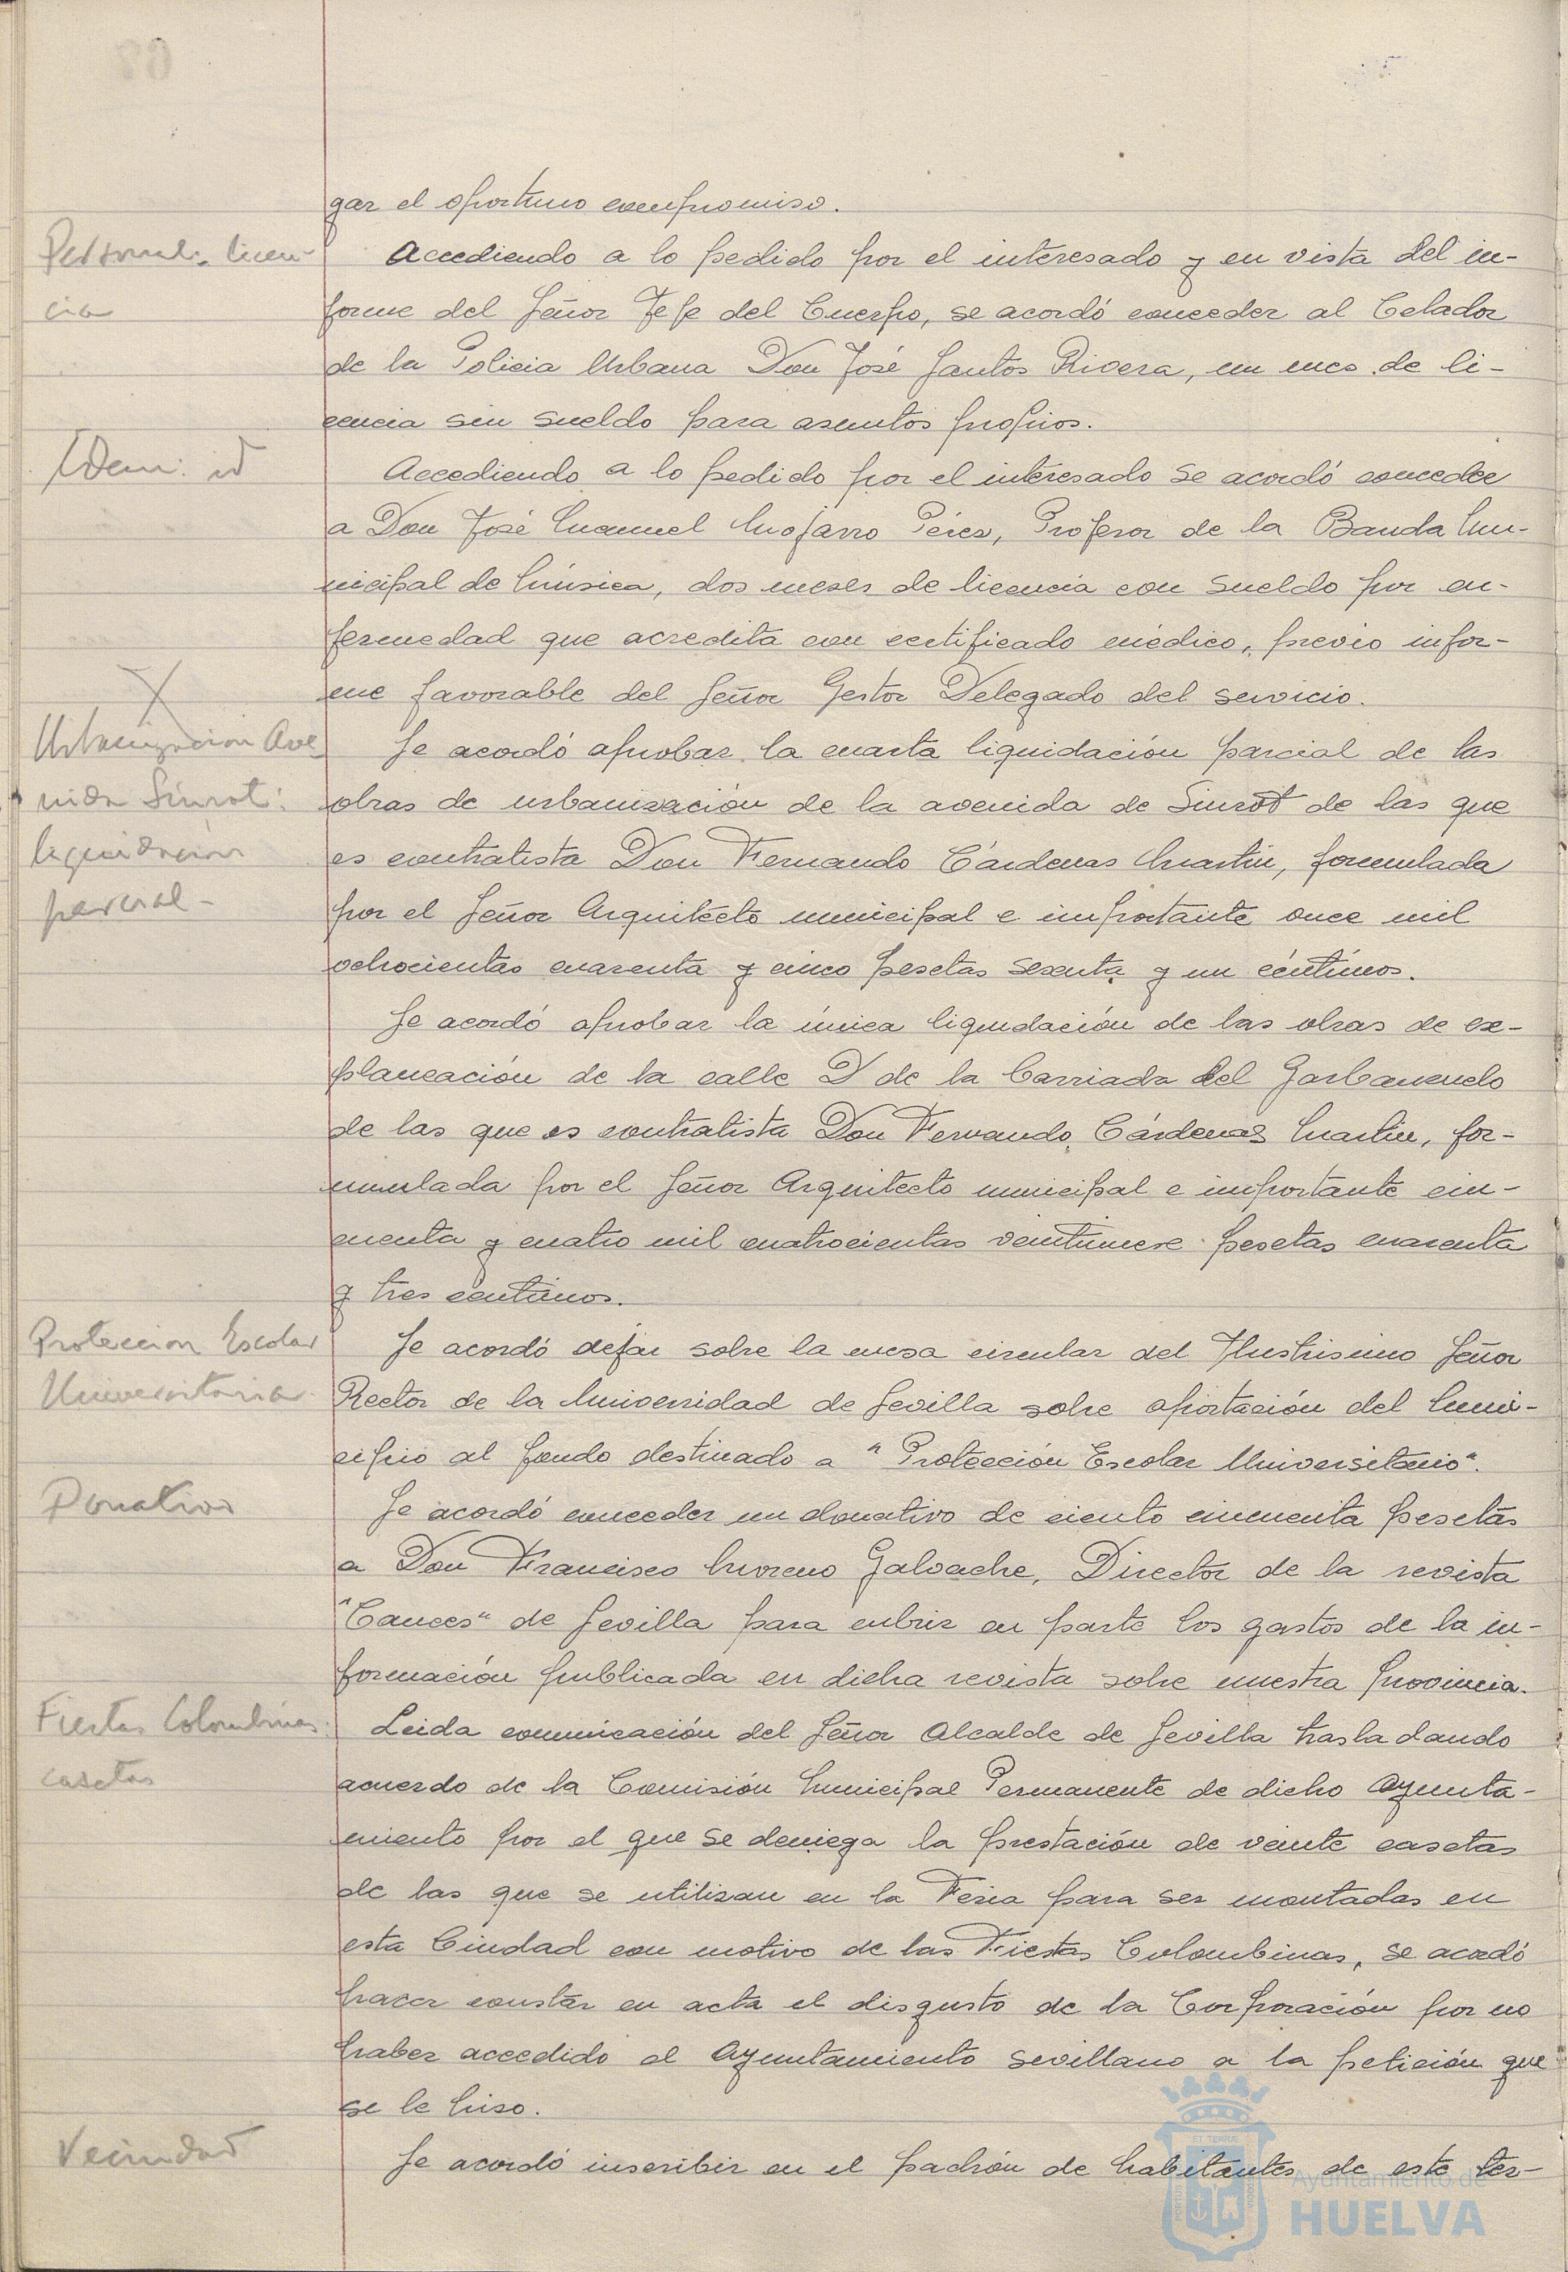 gar el oportuno compromiso.
Personal. licen-
cia
Accediendo a lo pedido por el interesado y en vista del in-
forme del Señor Jefe del Cuerpo, se acordó conceder al Celador
de la Policia Urbana Don José Santos Rivera, un mes de li-
cencia sin sueldo para asuntos propios.
Idem: id
Accediendo a lo pedido por el interesado se acordó conceder
a Don José Manuel Mojarro Pérez, Profesor de la Banda Mu-
nicipal de Música, dos meses de licencia con sueldo por en-
fermedad que acredita con certificado médico, previo infor-
me favorable del Señor Gestor Delegado del servicio.
Urbanización Ave
nida Siurot:
liquidación
parcial-
Se acordó aprobar la cuarta liquidación parcial de las
obras de urbanización de la avenida de Siurot de las que
es contratista Don Fernando Cárdenas Martin, formulada
por el Señor Arquitecto municipal e importante once mil
ochocientas cuarenta y cinco pesetas sesenta y un céntimos.
Se acordó aprobar la única liquidación de las obras de ex-
planeación de la calle D de la barriada del Garbanzuelo
de las que es contratista Don Fernando Cárdenas Martin, for-
mulada por el Señor Arquitecto municipal e importante cin-
cuenta y cuatro mil cuatrocientas veintinueve pesetas cuarenta
y tres centimos.
Protección Escolar
Universitaria
Se acordó dejar sobre la mesa circular del Ilustrisimo Señor
Rector de la Universidad de Sevilla sobre aportación del Muni-
cipio al fondo destinado a "Protección Escolar Universitario".
Donativo
Se acordó conceder un donativo de ciento cincuenta pesetas
a Don Francisco Moreno Galvache, Director de la revista
"Cauces" de Sevilla para cubrir en parte los gastos de la in-
formación publicada en dicha revista sobre nuestra Provincia.
Fiestas Colombinas:
casetas
Leida comunicación del Señor Alcalde de Sevilla trasladando
acuerdo de la Comisión Municipal Permanente de dicho Ayunta-
miento por el que se deniega la prestación de veinte casetas
de las que se utilizan en la Feria para ser montadas en
esta Ciudad con motivo de las Fiestas Colombinas, se acordó
hacer constar en acta el disgusto de la Corporación por no
haber accedido el Ayuntamiento sevillano a la petición que
se le hizo.
Vecindad
Se acordó inscribir en el padrón de habitantes de este tér-
Ayuntamiento de
HUELVA